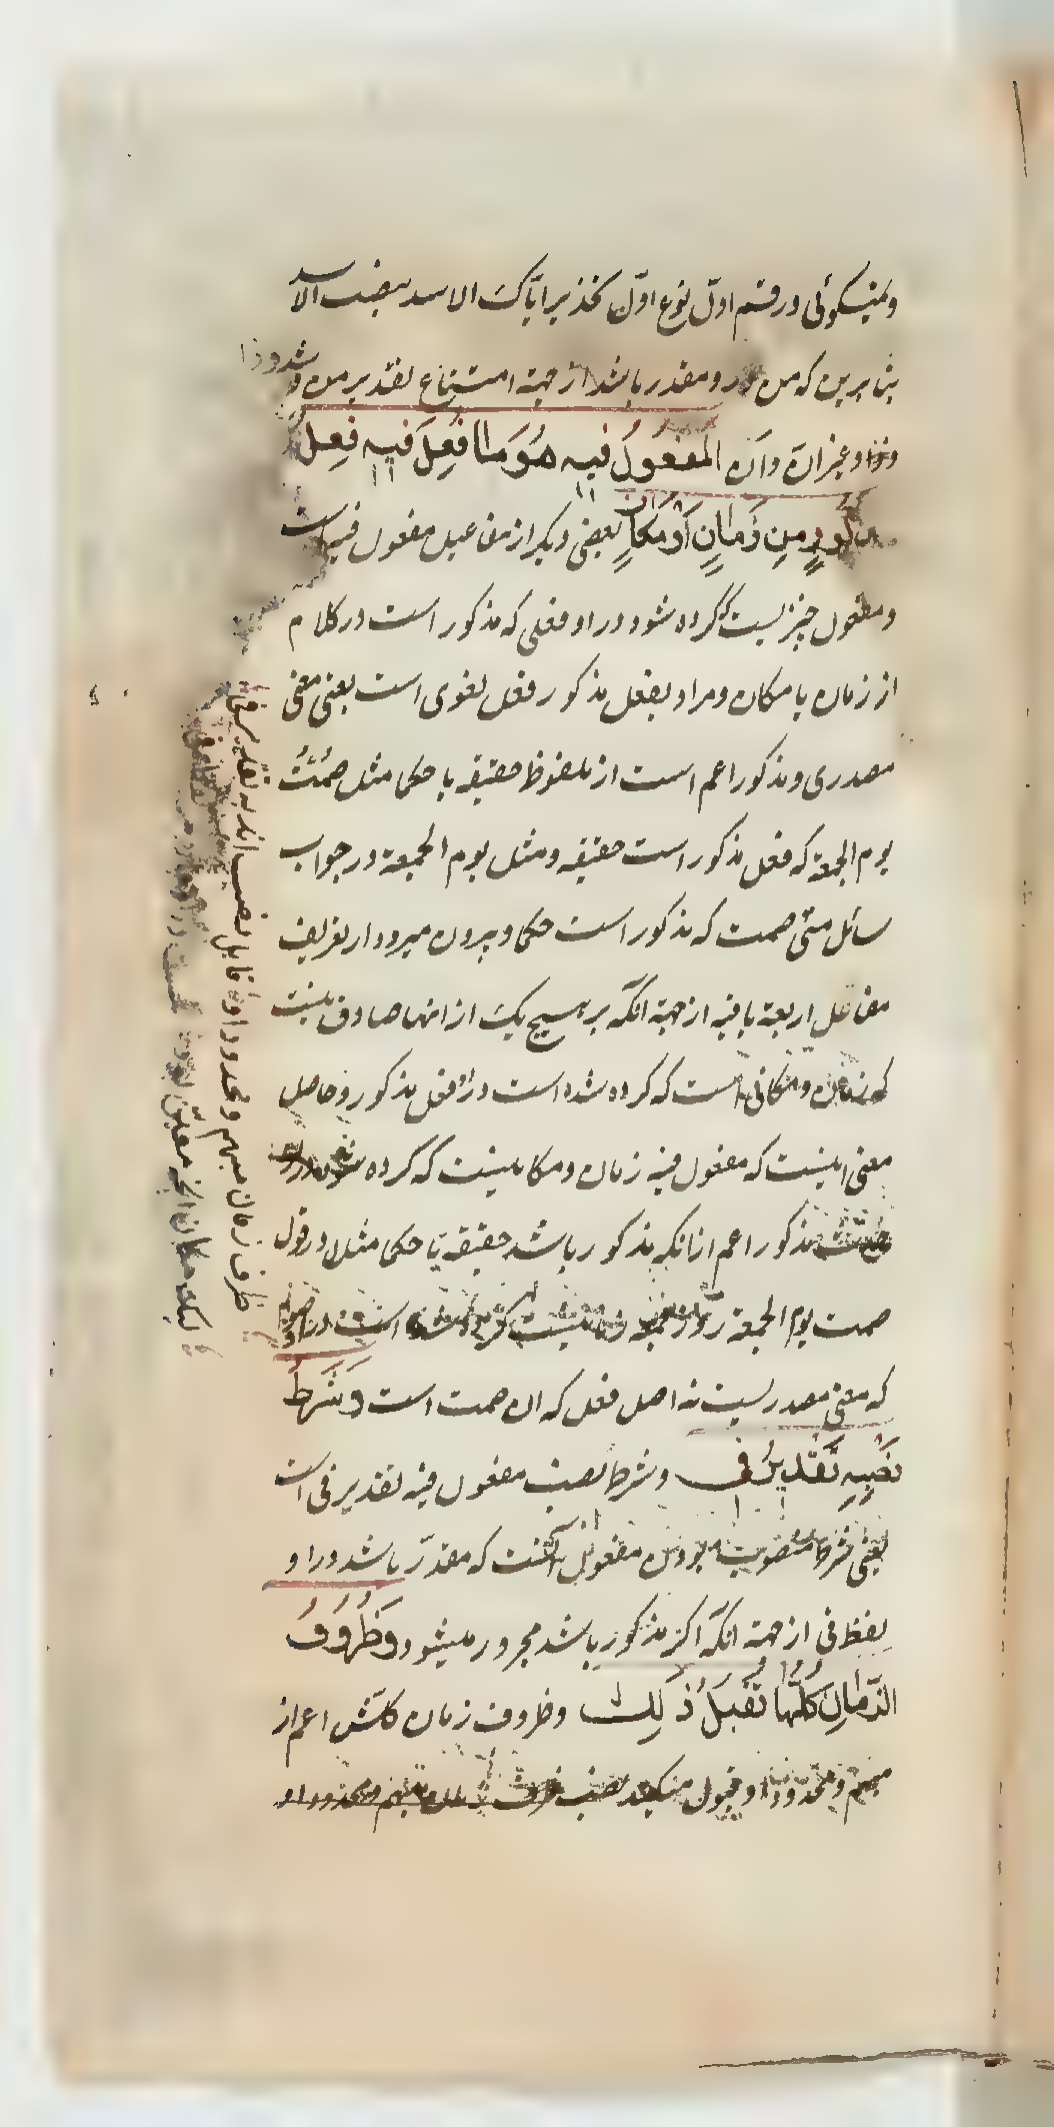 ونمیگوئی در قسم اول نوع اول تحذیر ایّاک الاسد بنصب الاسد
بنابرین که من در و مقدر باشد از جهة امتناع تقدیر من و شذوذا
وغیر ان دان المفعُولُ فیه هُوَ مَا فُعِلَ فیه فِعلٌ
مذکُورٍ مِن زَمانٍ أَو مَکانٍ یعنی دیکر از مفاعیل مفعول فیه است
و مفعول چیزیست که کرده شود در او فعلی که مذکور است در کلام
از زمان یا مکان و مراد بفعل مذکور فعل لغوی است یعنی معنی
مصدری و مذکور اعم است از ملفوظ حقیقه یا حکما مثل صُمْتُ
یوم الجمعة که فعل مذکور است حقیقه و مثل یوم الجمعة در جواب
سائل متی صمت که مذکور است حکما و بیرون میرود از تعریف
مفاعیل اربعة باقیه از جهة انکه بر هیچ یک از انها صادق نیست
که زمان و مکانی است که کرده شده است در او فعل مذکور و حاصل
معنی اینست که مفعول فیه زمان و مکانیست که کرده شود در او
مذکور اعم از انکه مذکور باشد حقیقه یا حکما مثلا در قول
صمت یوم الجمعة روز جمعه زمانیست کرده شده است در او صوم
که معنی مصدریست نه اصل فعل که ان صمت است وَشَرطُ
نَصبِهِ تَقدیرُ فی و شرط نصب مفعول فیه تقدیر فی است
یعنی شرط منصوب بودن مفعول انست که مقدّر باشد در او
لفظ فی از جهة انکه اکر مذکور باشد مجرور میشود وَظُرُوفُ
الزَّمانِ کُلُّها تَقبَلُ ذٰلِکَ و ظروف زمان کلش اعم از
مبهم و محدود او قبول میکند نصب
ظرف زمان مبهم و محدود او قابل نصب اند به تقدیر فی